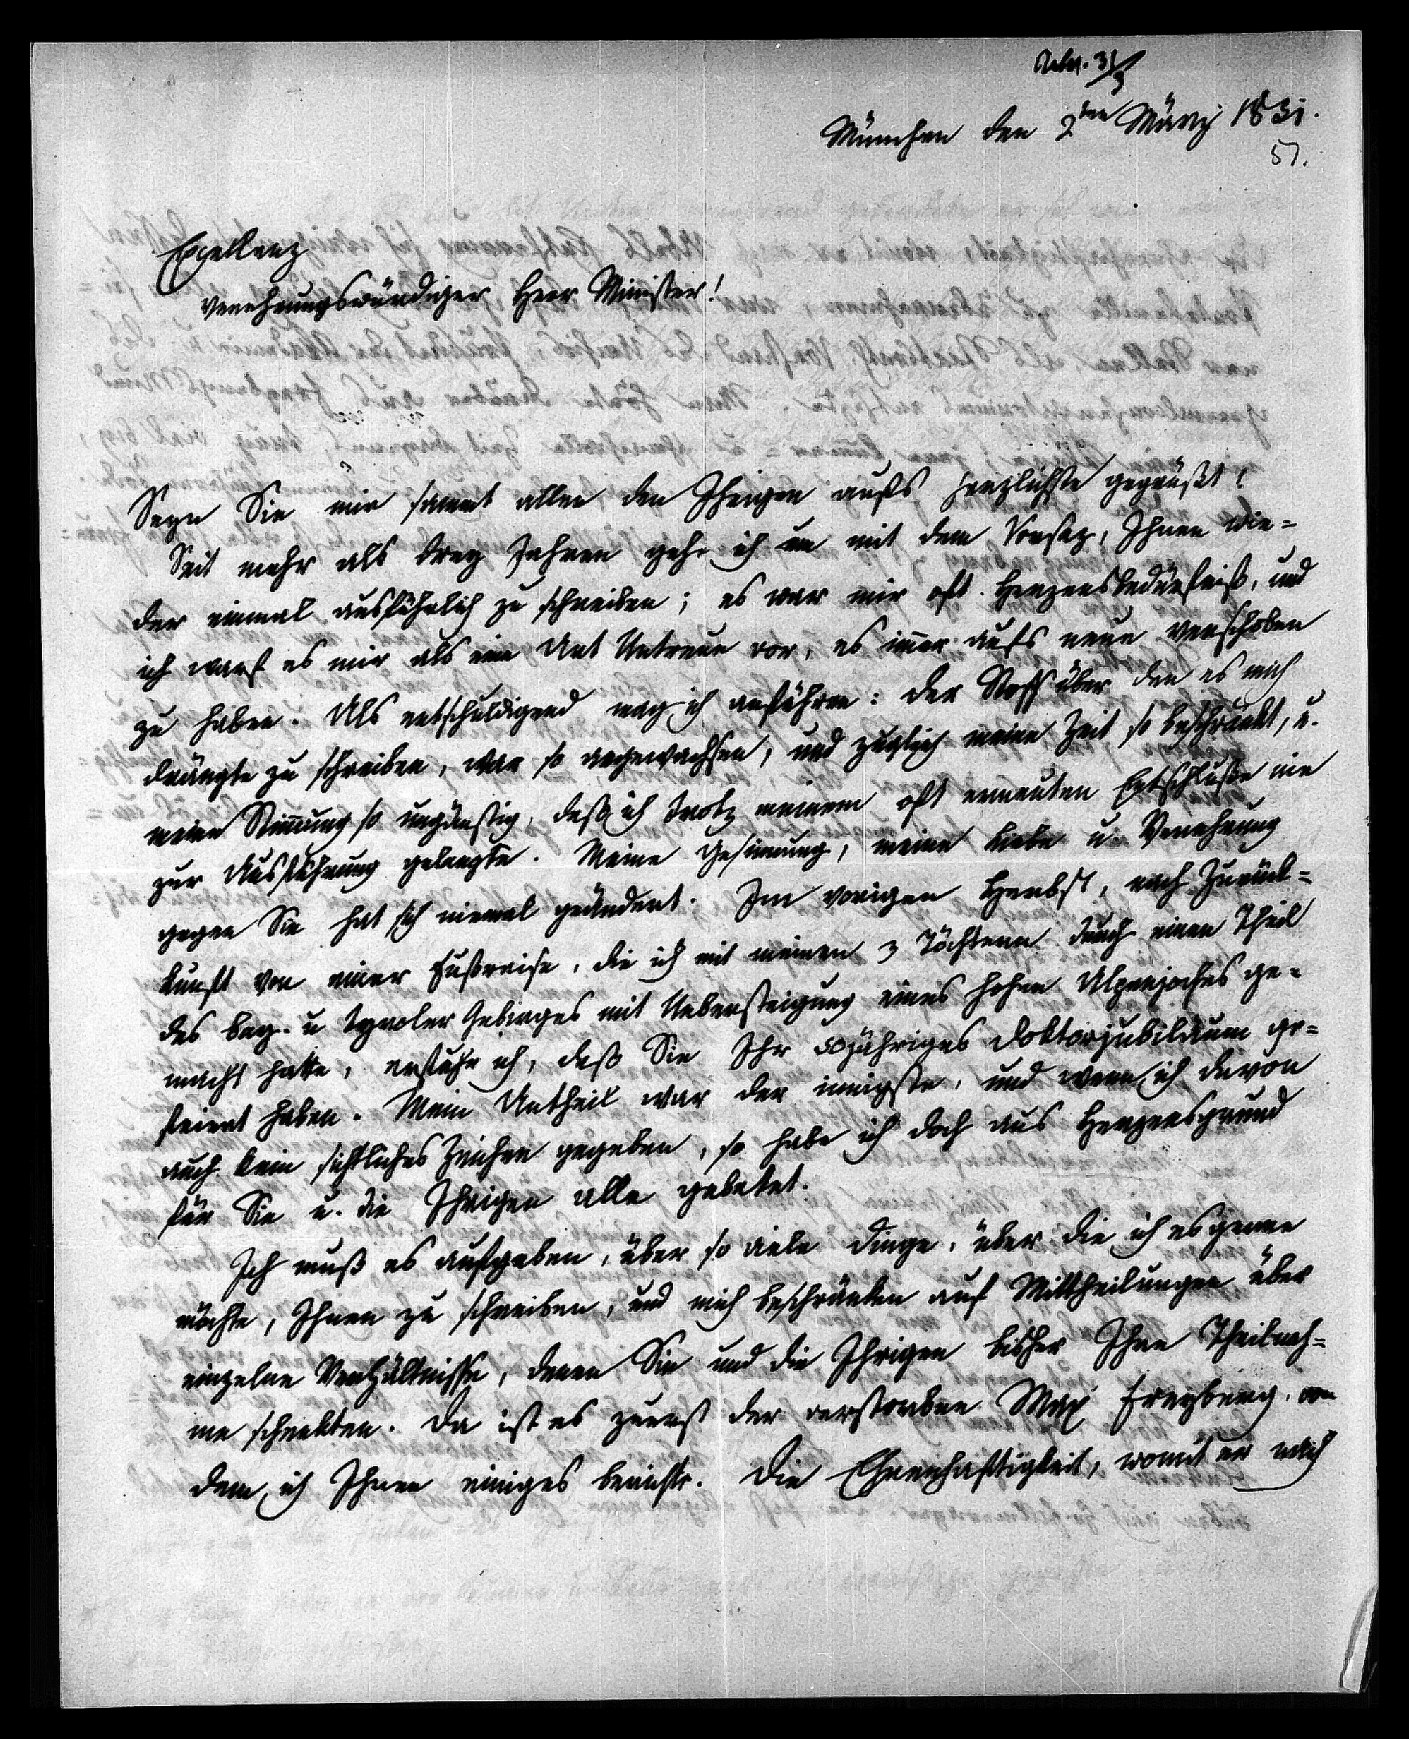 31/3
München den 2ten März 1831.
51.
Excellenz
verehrungswürdiger Herr Minister!
Seyn Sie mir sammt allen den Ihrigen aufs herzlichste gegrüßt!
Seit mehr als drey Jahren gehe ich um mit dem Vorsaz, Ihnen wie-
der einmal ausführlich zu schreiben; es war mir oft Herzensbedürfniß, und
ich warf es mir als eine Art Untreue vor, es immer aufs neue verschoben
zu haben. Als entschuldigend mag ich anführen: der Stoff über den es mich
drängte zu schreiben, war so angewachsen, und zugleich meine Zeit so beschränkt, u.
meine Stimmung so ungünstig, daß ich trotz meinem oft erneuten Entschlusse nie
zur Ausführung gelangte. Meine Gesinnung, meine Liebe u Verehrung
gegen Sie hat sich niemal geändert. Im vorigen Herbst, nach Zurück-
kunft von einer Fußreise, die ich mit meinen 3 Töchtern durch einen Theil
des bay. u Tyroler Gebirges mit Uebersteigung eines hohen Alpenjoches ge-
macht hatte, erfuhr ich, daß Sie Ihr 50jähriges Doktorjubiläum ge-
feiert haben. Mein Antheil war der innigste, und wenn ich davon
auch kein sichtliches Zeichen gegeben, so habe ich doch aus Herzensgrund
für Sie u. die Ihrigen alle gebetet.
Ich muß es aufgeben, über so viele Dinge, über die ich es gerne
möchte, Ihnen zu schreiben, und mich beschränken auf Mittheilungen über
einzelne Verhältnisse, denen Sie und die Ihrigen bisher Ihre Theilnah-
me schenkten. Da ist es zuerst der verstorbene Max Freyberg, von
dem ich Ihnen einiges berichte. Die Ehrenhaftigkeit, womit er mich